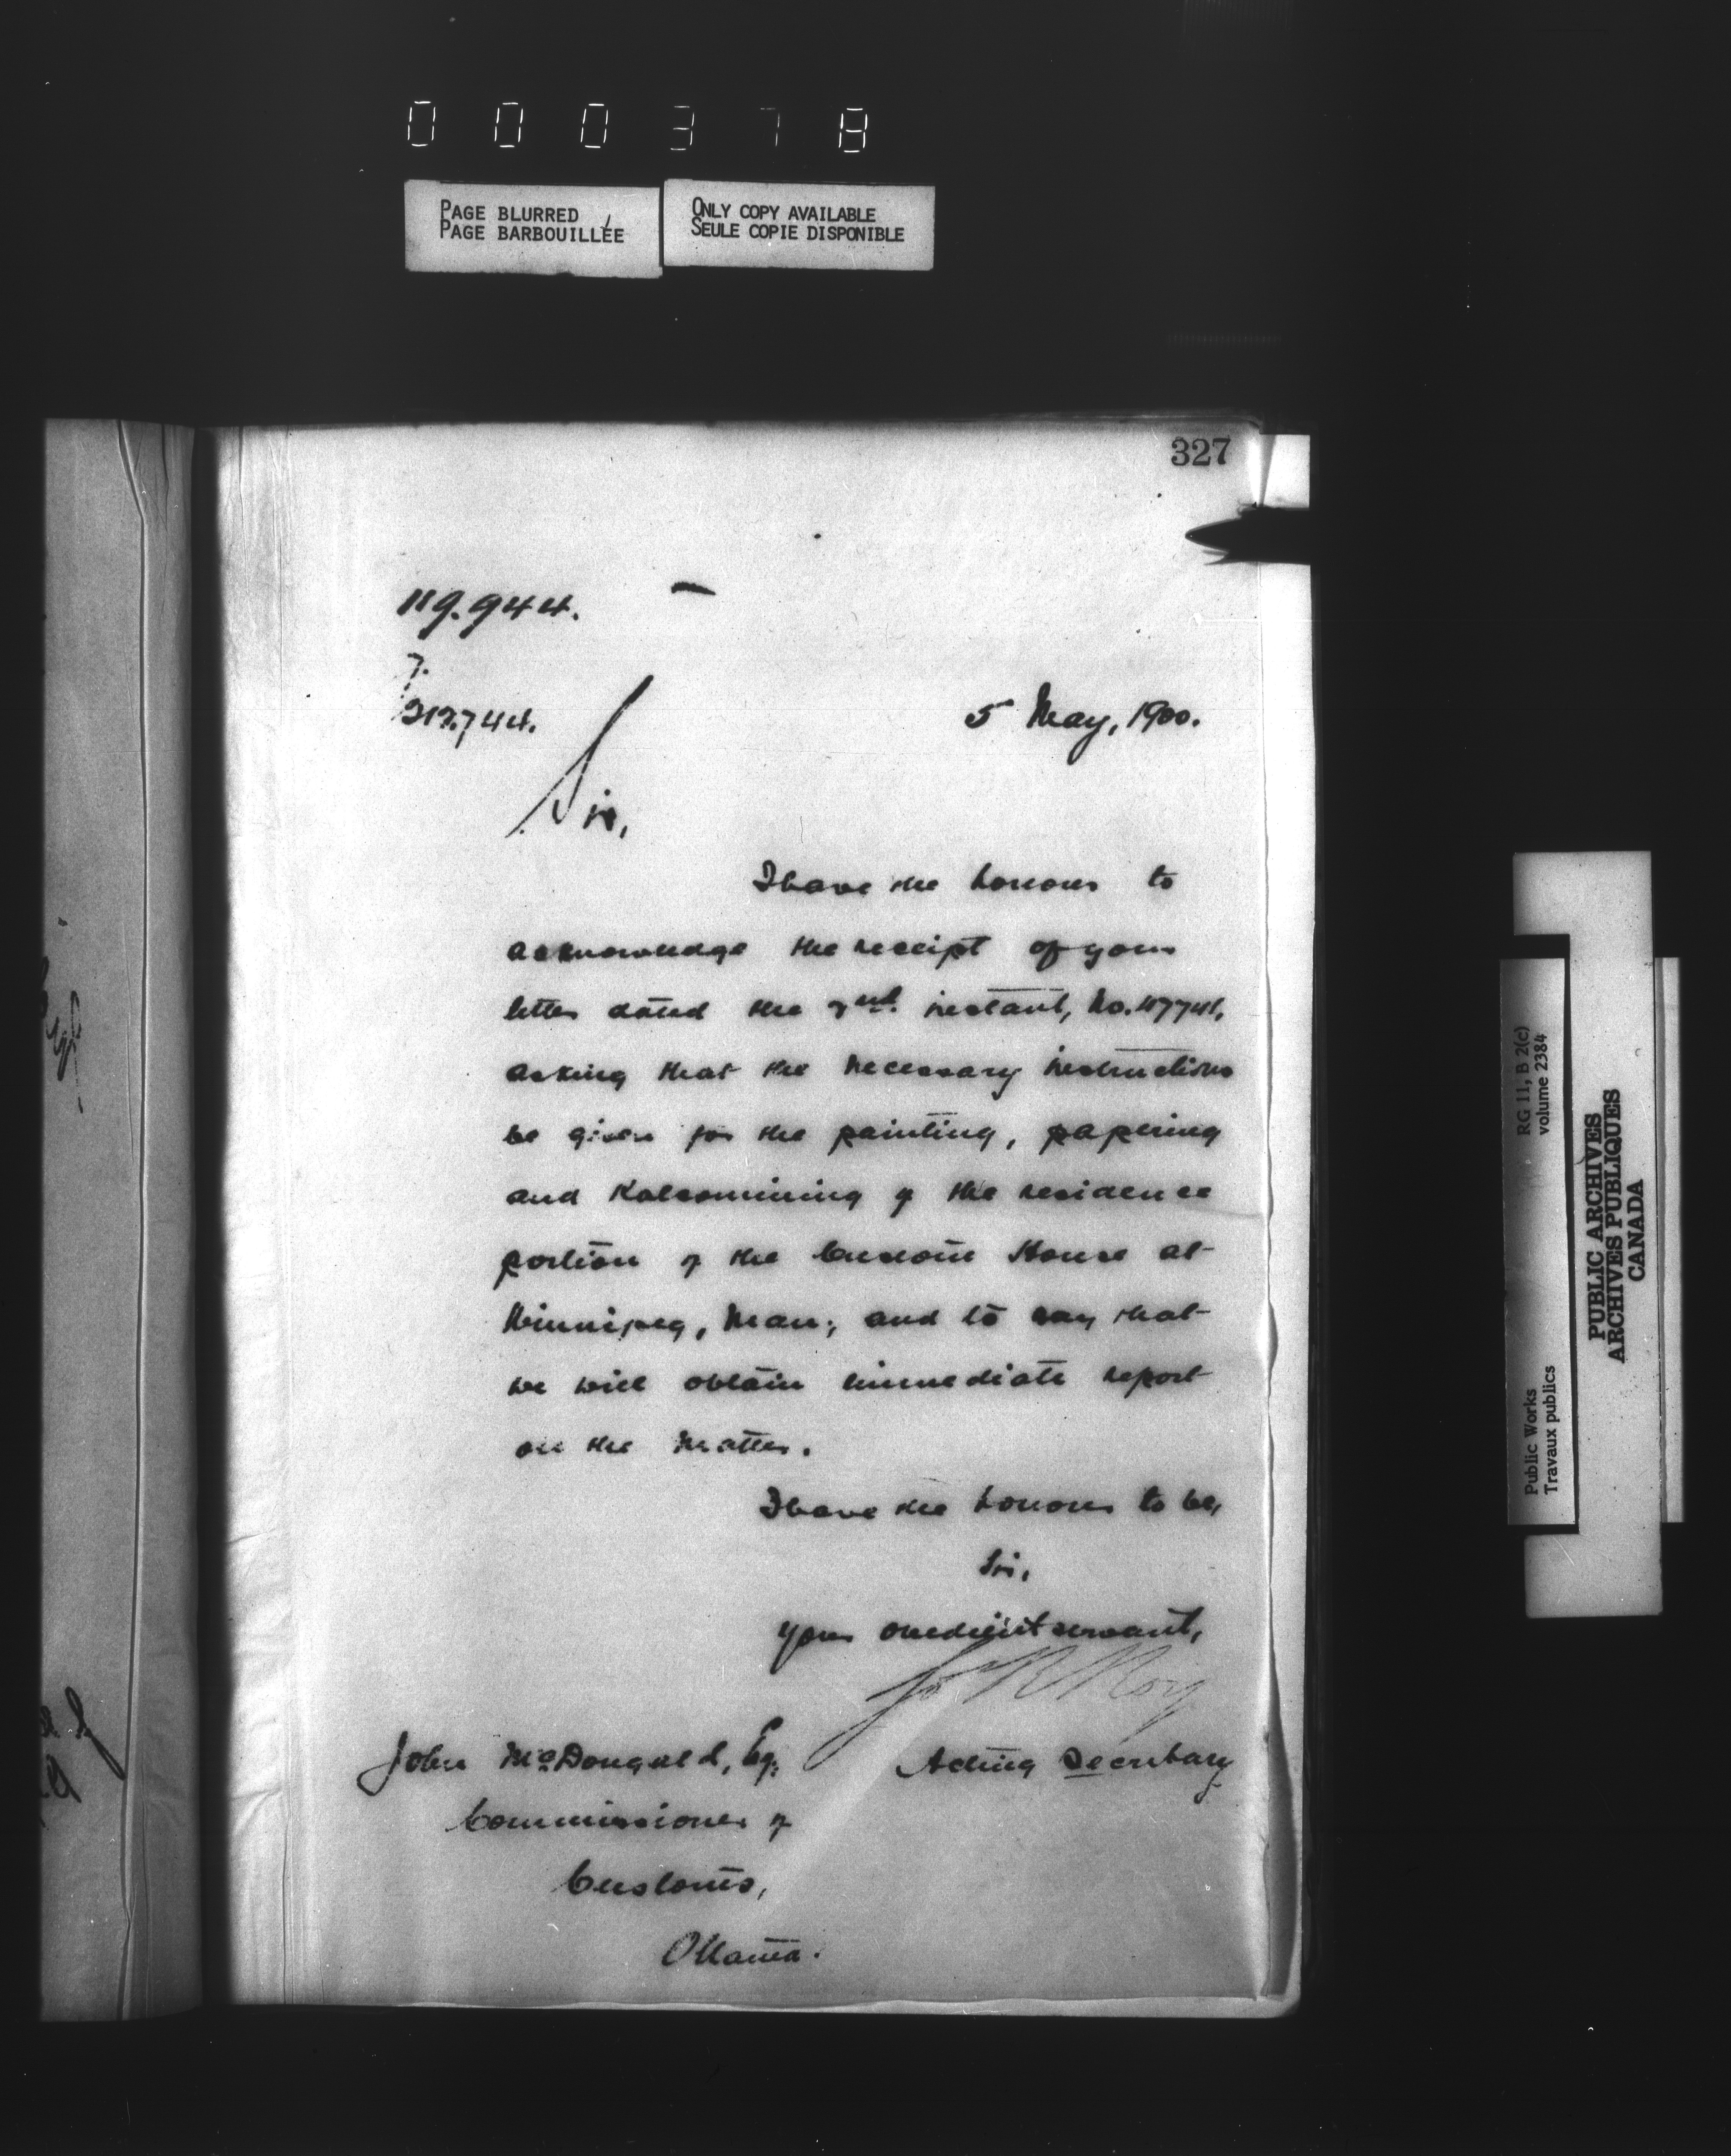 000378
PAGE BLURRED
PAGE BARBOUILLÉE
ONLY COPY AVAILABLE
SEULE COPIE DISPONIBLE
327
119.944.
7.
5 May, 1900.
Sir,
I have the honour to
acknowledge the receipt of your
letter dated the 2nd. instant, No. 117741,
asking that the necessary instructions
be given for the painting, papering
and Kalsomining of the residence
portion of the Custom House at
Winnipeg, Man; and to say that
we will obtain immediate report
on the matter.
I have the honour to be,
Sir,
Your obedient servant,
Jos R Roy
Acting Secretary
John McDougald, Esq.
Commissioner of
Customs,
Ottawa.
RG 11, B 2(c)
volume 2384
Public Works
Travaux publics
PUBLIC ARCHIVES
ARCHIVES PUBLIQUES
CANADA